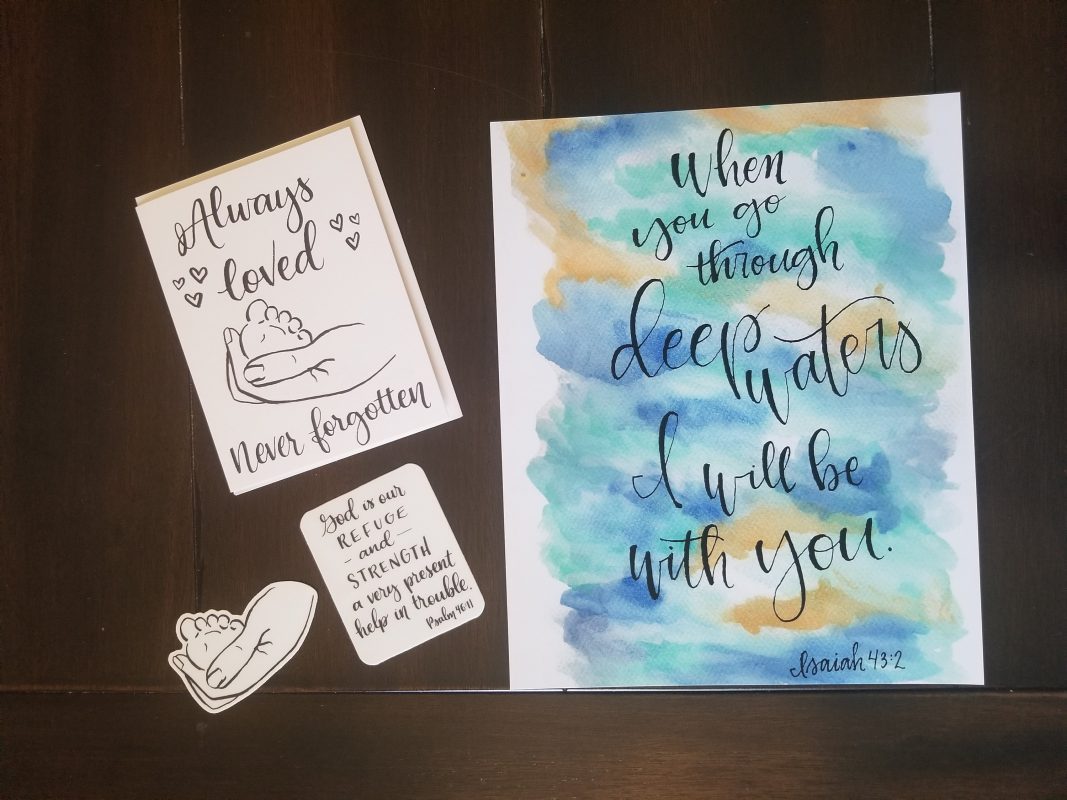 Always
loved
Never forgotten
God is our
REFUGE
- and -
STRENGTH
a very present
help in trouble.
Psalm 46:1
When
you go
through
deep
waters
I will be
with you.
Isaiah 43:2